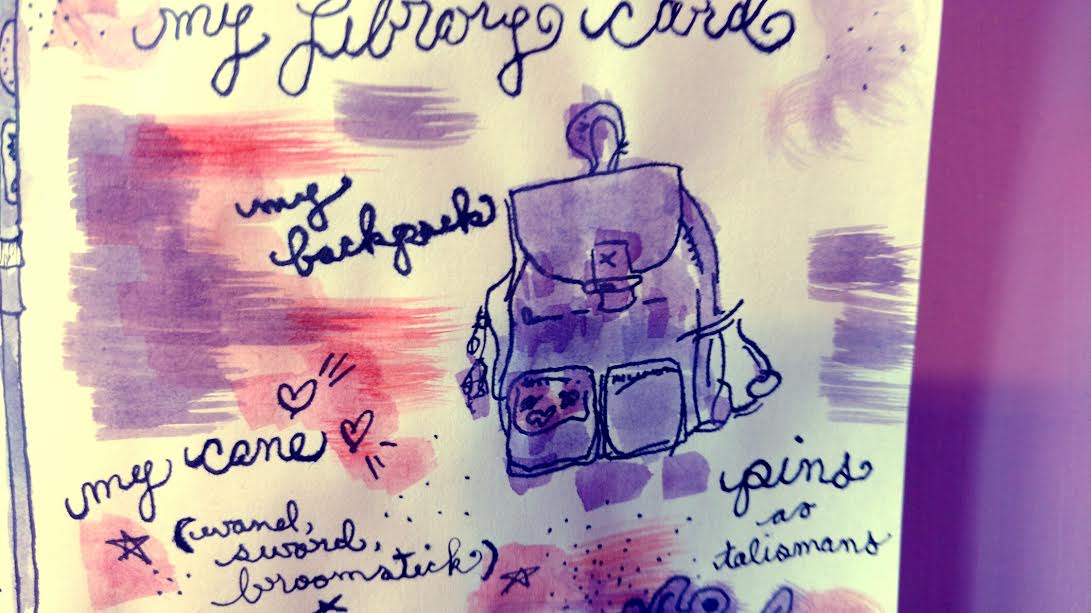 my Library card
my
backpack
my cane
(wand,
sword,
broomstick)
pins
as
talismans